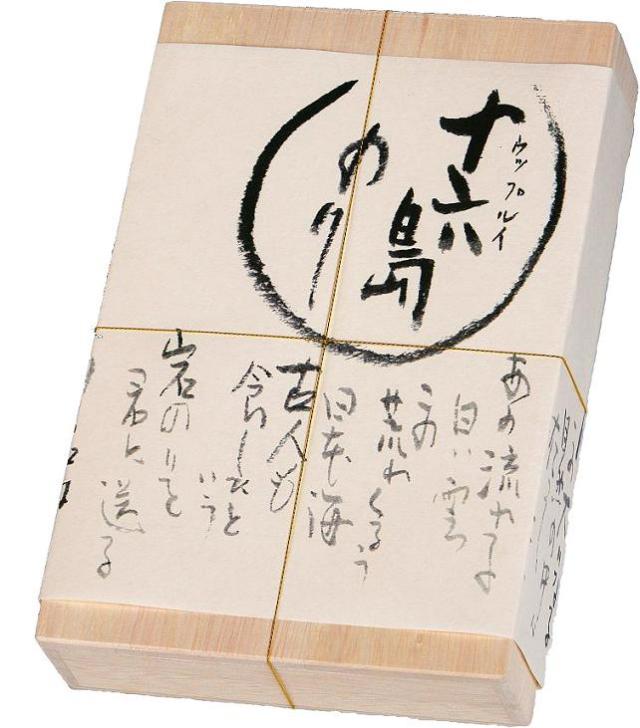 十六島
ウップルイ
のり
あの流れる
白い雲
この
荒れくるう
日本海
古人も
食したと
いう
岩のりを
君に送る